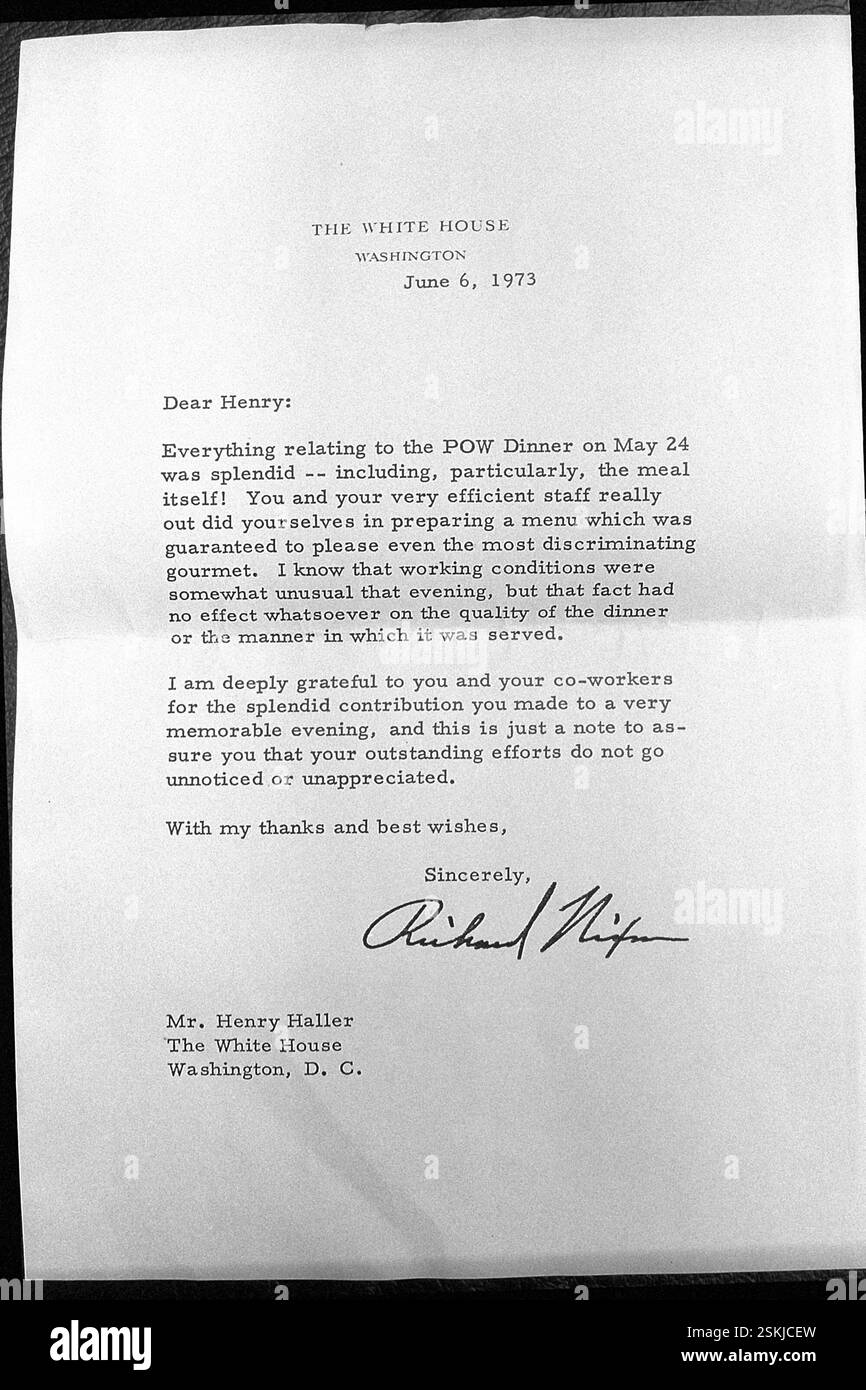 THE WHITE HOUSE
WASHINGTON
June 6, 1973
Dear Henry:
Everything relating to the POW Dinner on May 24
was splendid -- including, particularly, the meal
itself! You and your very efficient staff really
out did yourselves in preparing a menu which was
guaranteed to please even the most discriminating
gourmet. I know that working conditions were
somewhat unusual that evening, but that fact had
no effect whatsoever on the quality of the dinner
or the manner in which it was served.
I am deeply grateful to you and your co-workers
for the splendid contribution you made to a very
memorable evening, and this is just a note to as-
sure you that your outstanding efforts do not go
unnoticed or unappreciated.
With my thanks and best wishes,
Sincerely,
Richard Nixon
Mr. Henry Haller
The White House
Washington, D. C.
alamy
alamy
alamy
a
a
a
a
a
a
a
alamy
Image ID: 2SKJCEW
www.alamy.com